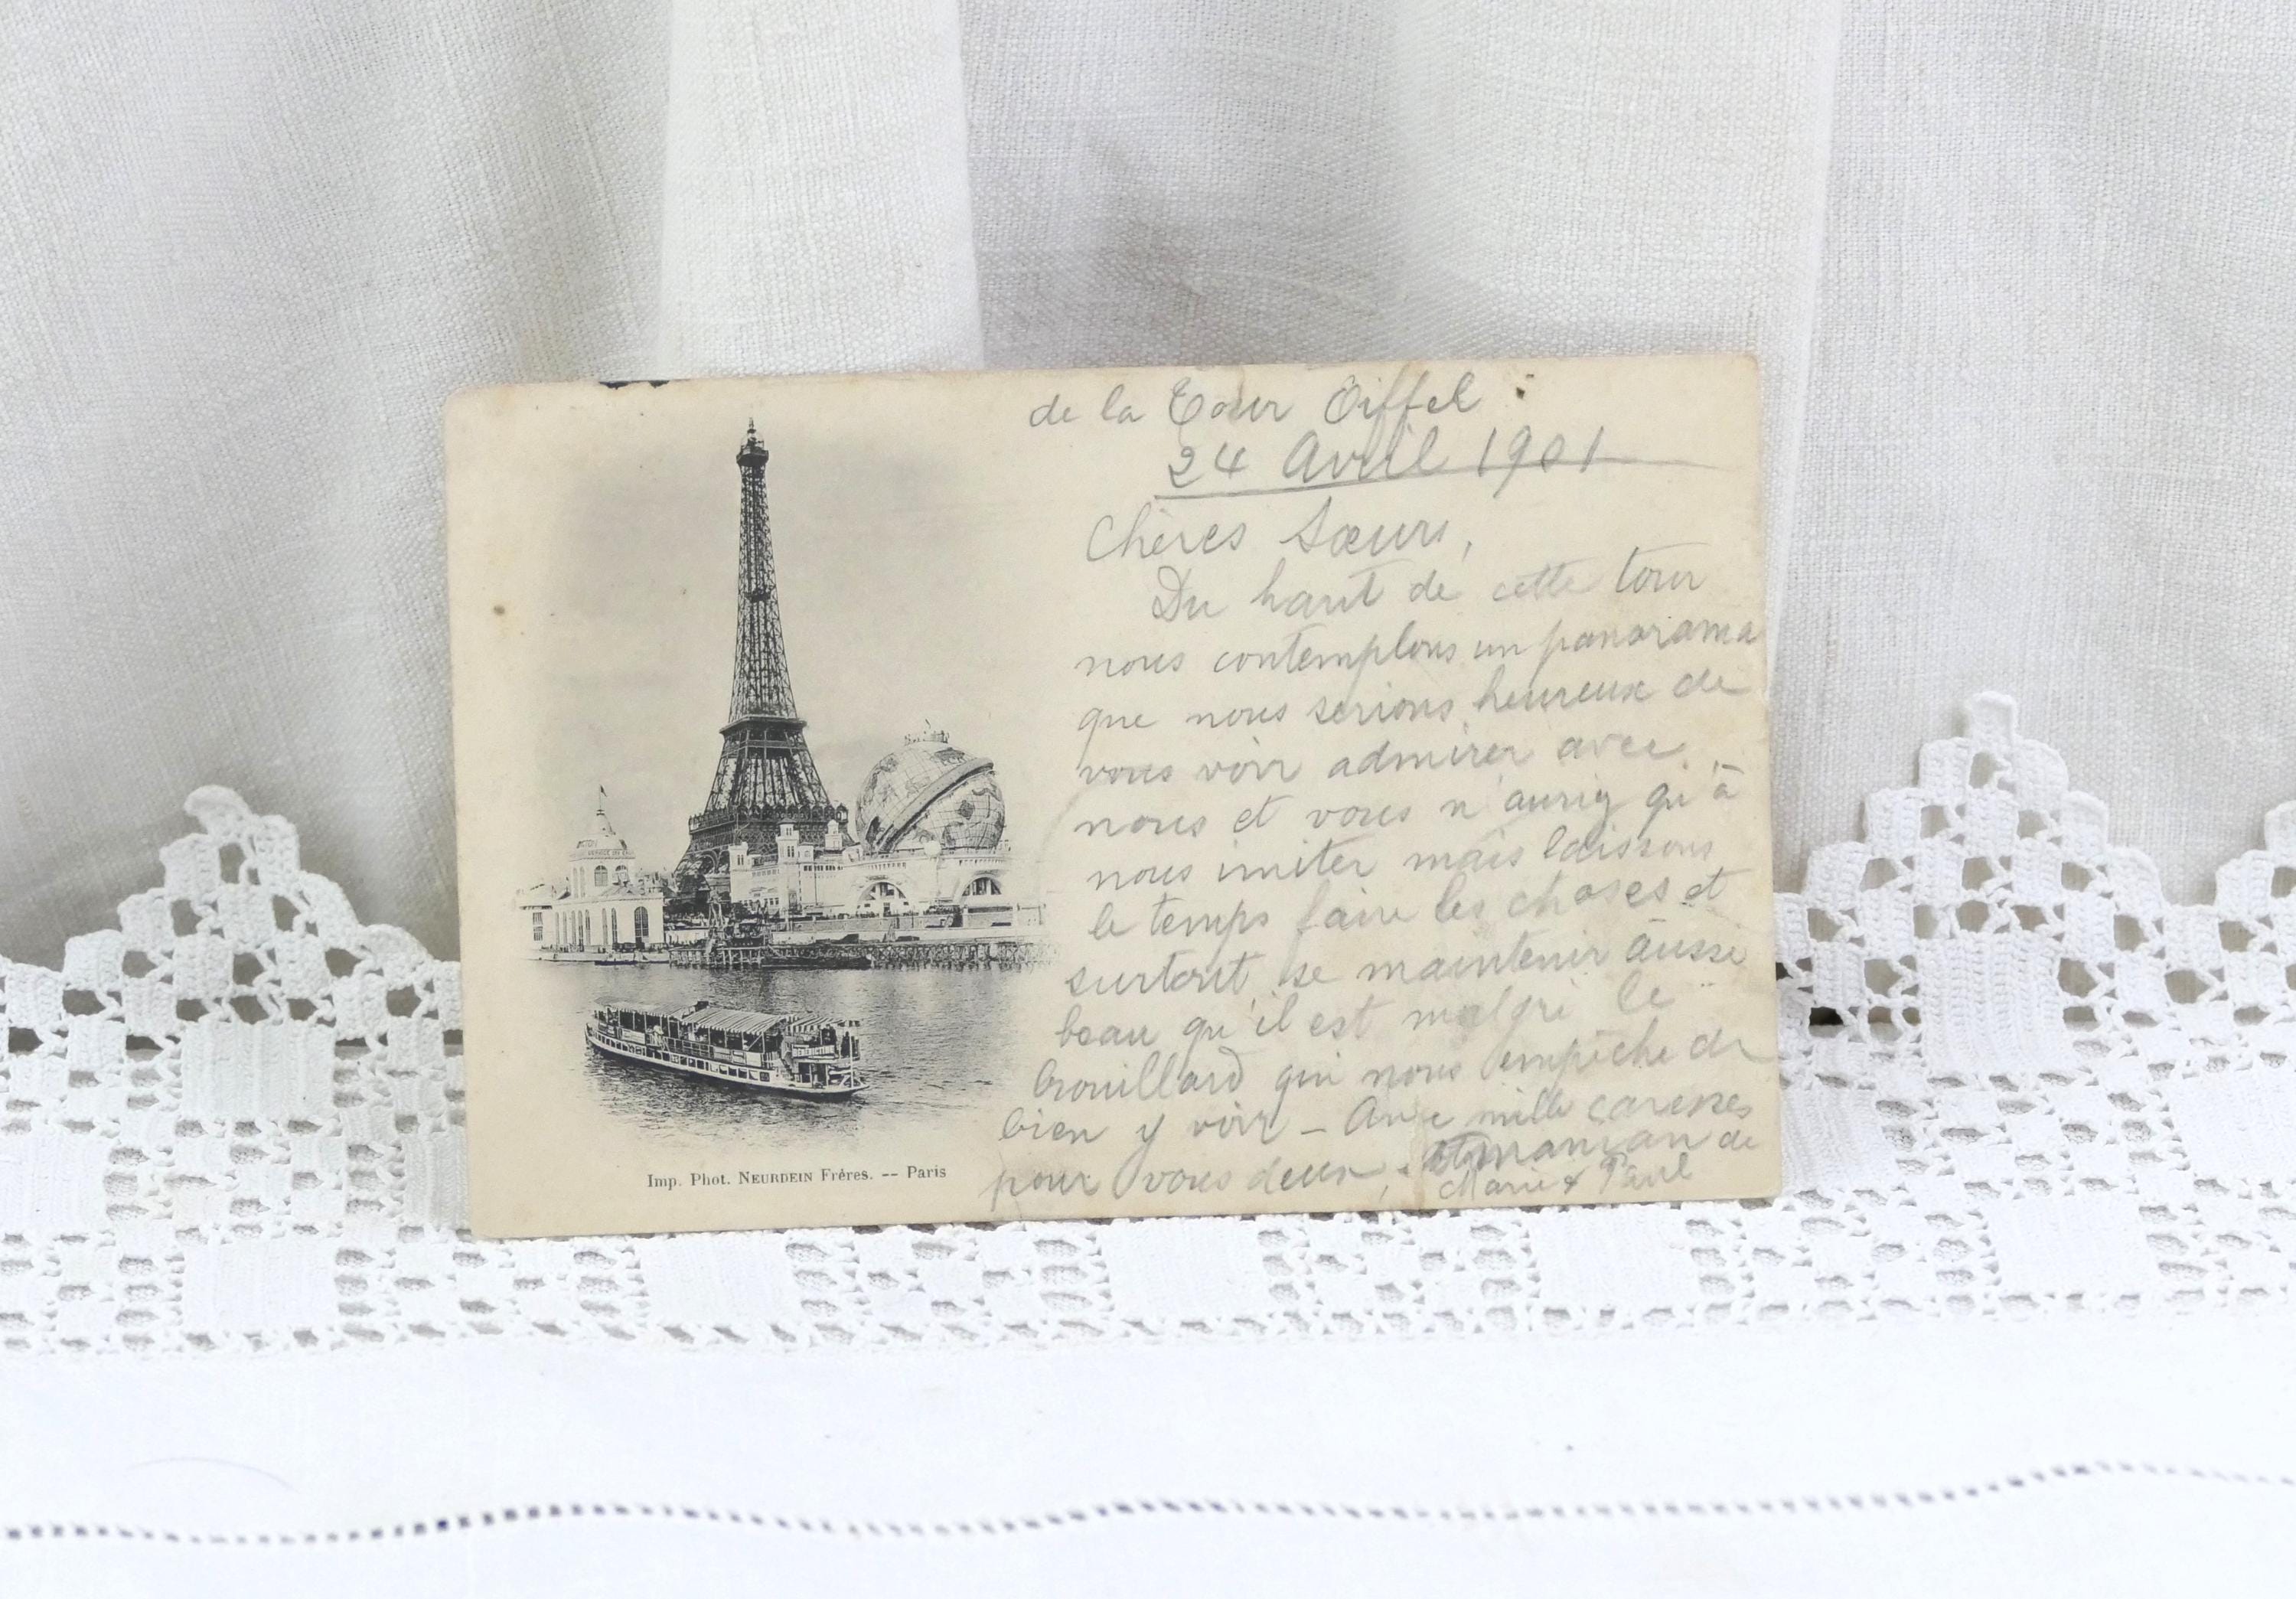 de la Tour Eiffel
24 Avril 1901
Chères Sœurs,
Du haut de cette tour
nous contemplons un panorama
que nous serions heureux de
vous voir admirer avec
nous et vous n'auriez qu'à
nous imiter mais laissons
le temps faire les choses et
surtout se maintenir aussi
beau qu'il est malgré le
brouillard qui nous empêche de
bien y voir – Avec mille caresses
pour vous deux, et maman de
Marie & Paul
BÉNÉDICTINE
Imp. Phot. NEURDEIN Frères. -- Paris